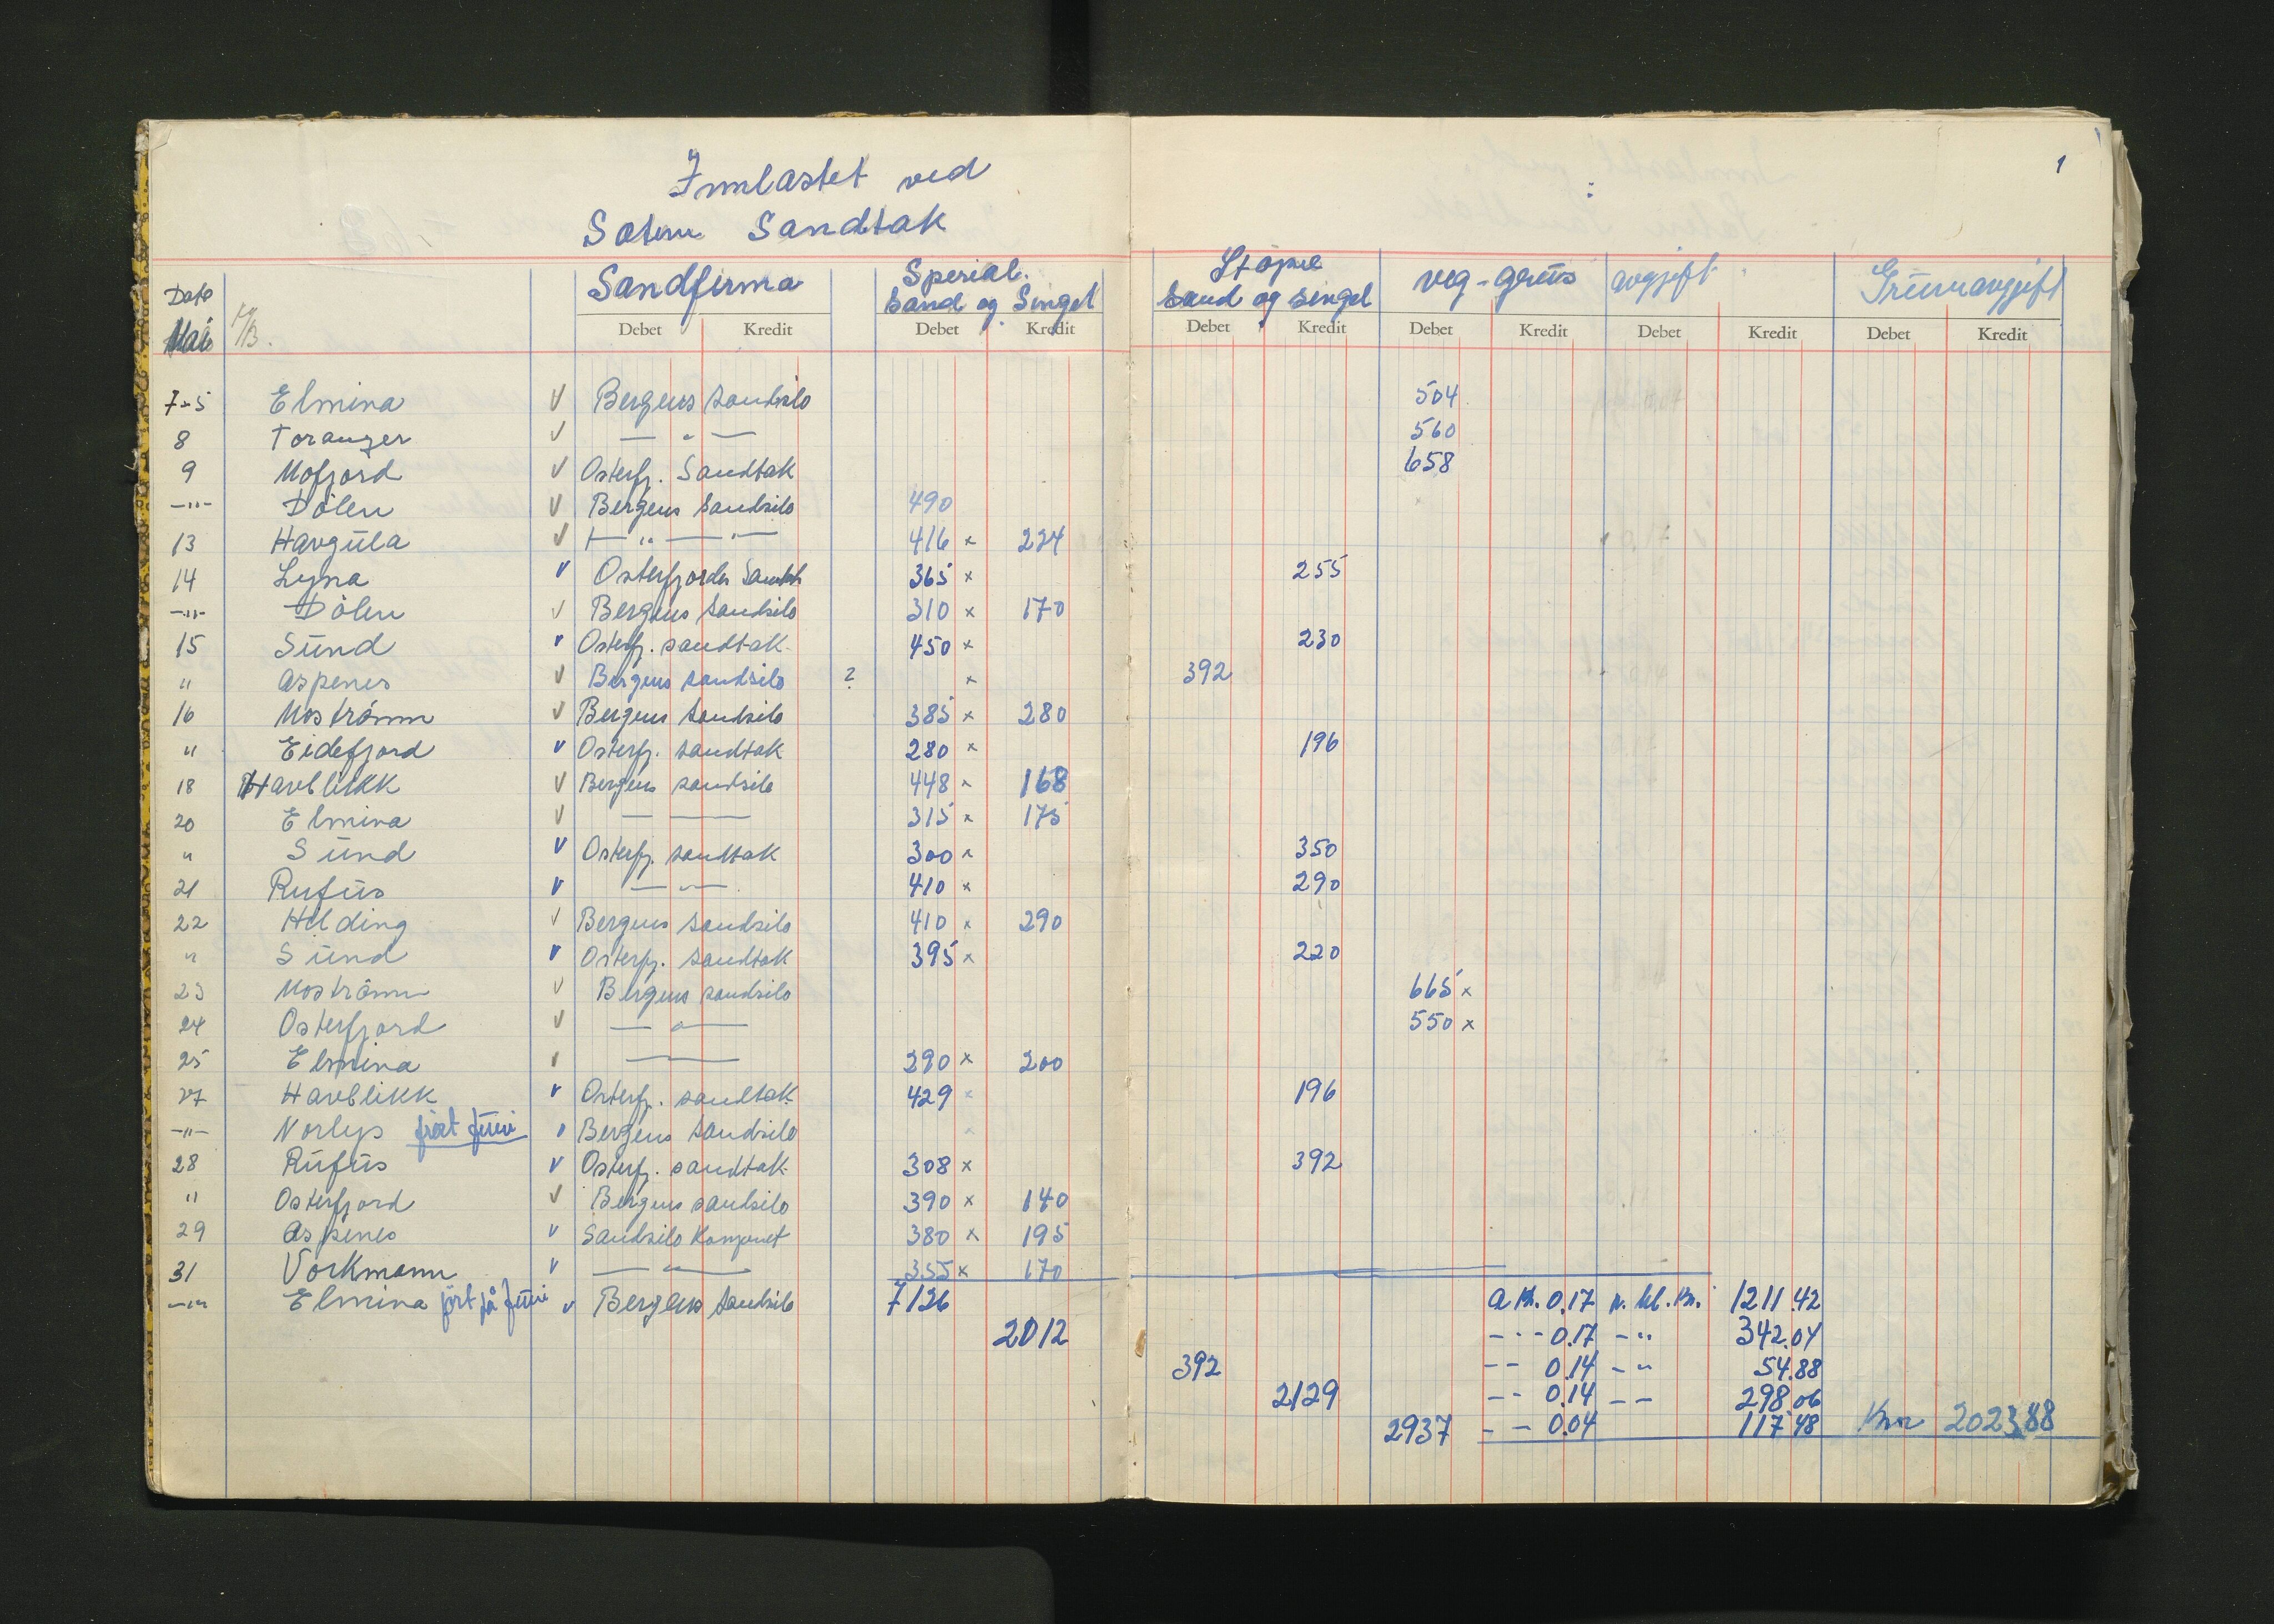 Innlastet ved
Sotem Sandtak
1
Dato
Mai
M/B.
Sandfirma
Spesial.
Sand og Singel
Støpe
Sand og singel
veg-grus
avgjift
Grunnavgjift
Debet Kredit Debet Kredit Debet Kredit Debet Kredit Debet Kredit Debet Kredit
7-5 Elmina V Bergens Sandsilo 504
8 Toranger V — " — 560
9 Mofjord V Osterfj. Sandtak 658
—"— Dölen V Bergens Sandsilo 490
13 Havgula V — " — " — 416 x 224
14 Lyna V Osterfjorden Sandtak 365 x 255
—"— Dölen V Bergens Sandsilo 310 x 170
15 Sund V Osterfj. sandtak 450 x 230
" Aspenes V Bergens sandsilo ? x 392
16 Moströmm V Bergens Sandsilo 385 x 280
" Eidefjord V Osterfj. sandtak 280 x 196
18 Havblikk V Bergens sandsilo 448 x 168
20 Elmina V — — 315 x 175
" Sund V Osterfj. sandtak 300 x 350
21 Rufus V — " — 410 x 290
22 Hilding V Bergens Sandsilo 410 x 290
" Sund V Osterfj. sandtak 395 x 220
23 Moströmm V Bergens sandsilo 665 x
24 Osterfjord V — " — 550 x
25 Elmina V — — 290 x 200
27 Havblikk V Osterfj. sandtak 429 x 196
—"— Norlys ført juni V Bergens Sandsilo x
28 Rufus V Osterfj. sandtak 308 x 392
" Osterfjord V Bergens sandsilo 390 x 140
29 Aspenes V Sandsilo Kompaniet 380 x 195
31 Vorkmann V — " — 355 x 170
—"— Elmina ført på juni V Bergens Sandsilo 7126 a Kr. 0.17 p. hl. Kr. 1211.42
2012 - - - 0.17 - " 342.04
392 - - 0.14 - " 54.88
2129 - - 0.14 - - 298.06
2937 - - 0.04 117.48 Kr 2023.88